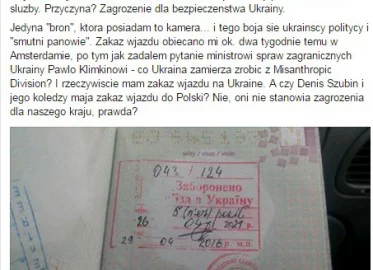 sluzby. Przyczyna? Zagrozenie dla bezpieczenstwa Ukrainy.
Jedyna "bron", ktora posiadam to kamera... i tego boja sie ukrainscy politycy i
"smutni panowie". Zakaz wjazdu obiecano mi ok. dwa tygodnie temu w
Amsterdamie, po tym jak zadalem pytanie ministrowi spraw zagranicznych
Ukrainy Pawlo Klimkinowi - co Ukraina zamierza zrobic z Misanthropic
Division? I rzeczywiscie mam zakaz wjazdu na Ukraine. A czy Denis Szubin i
jego koledzy maja zakaz wjazdu do Polski? Nie, oni nie stanowia zagrozenia
dla naszego kraju, prawda?
043 / 124
Заборонено
в'їзд в Україну
5 (п'ять) років
26 2021
29 04 2016 р.